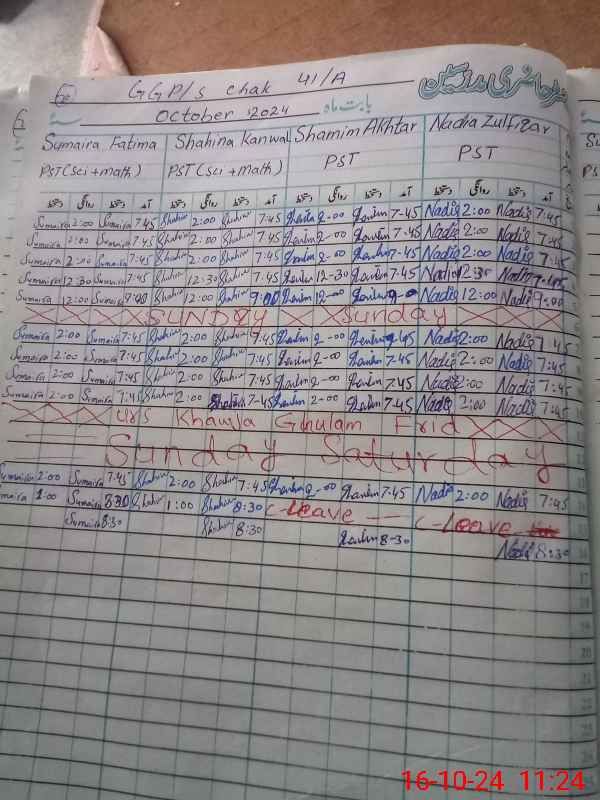 GGP/s chak 41/A
October 2024 بابت ماہ
Sumaira Fatima Shahina Kanwal Shamim Akhtar Nadia Zulfiqar
PST(Sci+math) PST(Sci+Math) PST PST
دستخط روانگی دستخط آمد دستخط روانگی دستخط آمد دستخط روانگی دستخط آمد دستخط روانگی دستخط آمد
Sumaira 2:00 Sumaira 7:45 Shahina 2:00 Shahina 7:45 2-00 7-45 Nadia 2:00 Nadia 7:45
Sumaira 2:00 Sumaira 7:45 Shahina 2:00 Shahina 7:45 2-00 7-45 Nadia 2:00 Nadia 7:45
Sumaira 2:00 Sumaira 7:45 Shahina 2:00 Shahina 7:45 2-00 7-45 Nadia 2:00 Nadia 7:45
Sumaira 12:30 Sumaira 7:45 Shahina 12:30 Shahina 7:45 12-30 7-45 Nadia 12:30 Nadia 7:45
Sumaira 12:00 Sumaira 9:00 Shahina 12:00 Shahina 9:00 12-00 Nadia 12:00 Nadia 9:00
SUNDAY Sunday
Sumaira 2:00 Sumaira 7:45 Shahina 2:00 Shahina 7:45 2-00 Nadia 2:00 Nadia 7:45
Sumaira 2:00 Sumaira 7:45 Shahina 2:00 Shahina 7:45 2-00 7-45 Nadia 2:00 Nadia 7:45
Sumaira 2:00 Sumaira 7:45 Shahina 2:00 Shahina 7:45 2-00 7-45 Nadia 2:00 Nadia 7:45
Sumaira 2:00 Sumaira 7:45 Shahina 2:00 Shahina 7-45 2-00 7-45 Nadia 2:00 Nadia 7:45
Urs Khawja Ghulam Frid
Sunday Saturday
Sumaira 2:00 Sumaira 7:45 Shahina 2:00 Shahina 7:45 2-00 7-45 Nadia 2:00 Nadia 7:45
Sumaira 1:00 Sumaira 8:30 Shahina 1:00 Shahina 8:30 C-Leave C-Leave
Sumaira 8:30 Shahina 8:30 8-30 Nadia 8:30
16-10-24 11:24